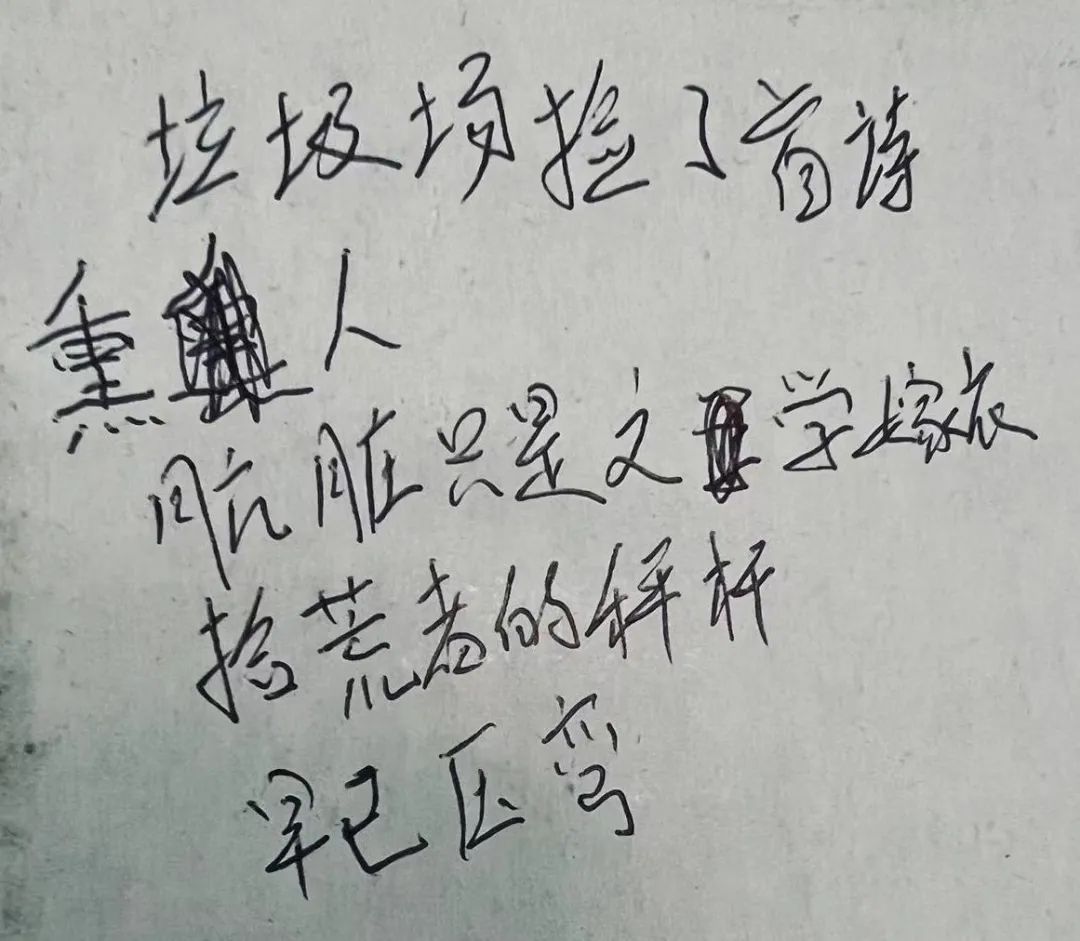 垃圾场捡了首诗
熏人
肮脏只是文学嫁衣
拾荒者的秤杆
早已压弯